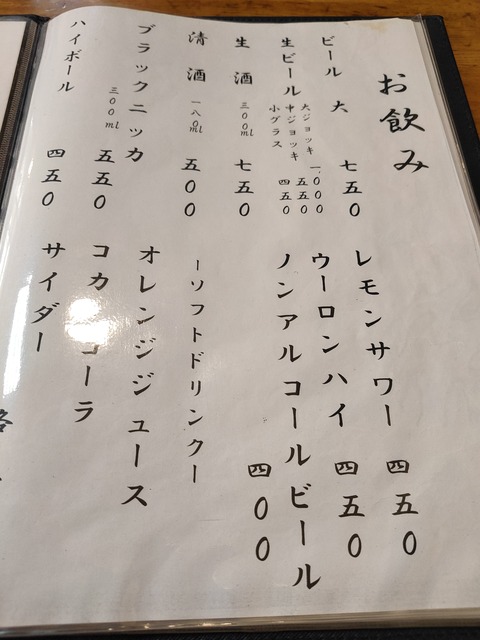 お飲み
ビール 大 七五〇
生ビール 大ジョッキ 一、〇〇〇
中ジョッキ 五五〇
小グラス 四五〇
生酒 三〇〇ml 七五〇
清酒 一八〇ml 五〇〇
ブラックニッカ
三〇〇ml 五五〇
ハイボール 四五〇
レモンサワー 四五〇
ウーロンハイ 四五〇
ノンアルコールビール
四〇〇
ーソフトドリンクー
オレンジジュース
コカコーラ
サイダー